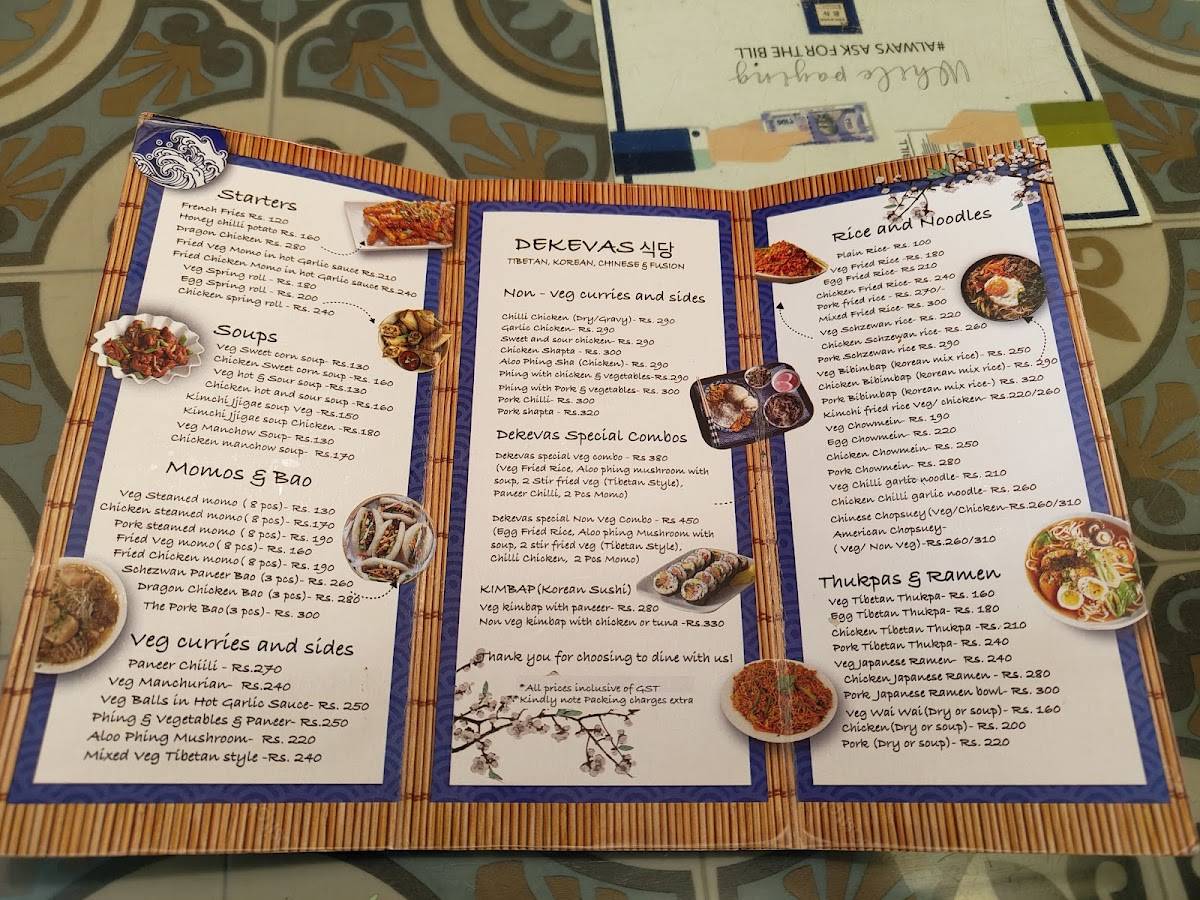 While paying
#ALWAYS ASK FOR THE BILL
BILL
Starters
French Fries Rs. 120
Honey chilli potato Rs. 160
Dragon Chicken Rs. 280
Fried veg Momo in hot Garlic sauce Rs.210
Fried Chicken Momo in hot Garlic sauce Rs.240
Veg Spring roll - Rs. 180
Egg Spring roll - Rs. 200
Chicken spring roll - Rs. 240
Soups
Veg Sweet corn soup- Rs.130
Chicken Sweet corn soup -Rs. 160
Veg hot & Sour soup -Rs.130
Chicken hot and sour soup -Rs.160
Kimchi Jjigae soup Veg -Rs.150
Kimchi Jjigae soup Chicken -Rs.180
Veg Manchow Soup- Rs.130
Chicken manchow soup- Rs.170
Momos & Bao
Veg Steamed momo ( 8 pcs)- Rs. 130
Chicken steamed momo ( 8 pcs)- Rs.170
Pork steamed momo ( 8 pcs)- Rs. 190
Fried Veg momo ( 8 pcs)- Rs. 160
Fried Chicken momo ( 8 pcs)- Rs. 190
Schezwan Paneer Bao (3 pcs)- Rs. 260
Dragon Chicken Bao (3 pcs)- Rs. 280
The Pork Bao(3 pcs)- Rs. 300
Veg curries and sides
Paneer Chiili - Rs.270
Veg Manchurian- Rs.240
Veg Balls in Hot Garlic Sauce- Rs. 250
Phing & Vegetables & Paneer- Rs.250
Aloo Phing Mushroom- Rs. 220
Mixed Veg Tibetan style -Rs. 240
DEKEVAS 식당
TIBETAN, KOREAN, CHINESE & FUSION
Non - veg curries and sides
Chilli Chicken (Dry/Gravy)- Rs. 290
Garlic Chicken- Rs. 290
Sweet and sour chicken- Rs. 290
Chicken Shapta - Rs. 300
Aloo Phing Sha (Chicken)- Rs. 290
Phing with chicken & vegetables-Rs.290
Phing with Pork & vegetables- Rs. 300
Pork Chilli- Rs. 300
Pork shapta - Rs.320
Dekevas Special Combos
Dekevas special veg combo - Rs 380
(veg Fried Rice, Aloo phing mushroom with
soup, 2 Stir fried veg (Tibetan Style),
Paneer Chilli, 2 Pcs Momo)
Dekevas special Non Veg Combo - Rs 450
(Egg Fried Rice, Aloo phing Mushroom with
soup, 2 stir fried veg (Tibetan Style),
Chilli Chicken, 2 Pcs Momo)
KIMBAP(Korean Sushi)
Veg kimbap with paneer- Rs. 280
Non veg kimbap with chicken or tuna -Rs.330
Thank you for choosing to dine with us!
*All prices inclusive of GST
*Kindly note Packing charges extra
Rice and Noodles
Plain Rice- Rs. 100
Veg Fried Rice -Rs. 180
Egg Fried Rice- Rs 210
Chicken Fried Rice- Rs. 240
Pork fried rice - Rs. 270/-
Mixed Fried Rice- Rs. 300
Veg Schzewan rice- Rs. 220
Chicken Schzewan rice- Rs. 260
Pork Schzewan rice Rs. 290
Veg Bibimbap (korean mix rice)- Rs. 250
Chicken Bibimbap (korean mix rice)- Rs. 290
Pork Bibimbap (korean mix rice-) Rs. 320
Kimchi fried rice veg/ chicken- Rs.220/260
Veg Chowmein- Rs. 190
Egg Chowmein- Rs. 220
Chicken Chowmein- Rs. 250
Pork Chowmein- Rs. 280
Veg Chilli garlic noodle- Rs. 210
Chicken Chilli garlic noodle- Rs. 260
Chinese Chopsuey (Veg/Chicken-Rs.260/310
American Chopsuey-
( Veg/ Non Veg) -Rs.260/310
Thukpas & Ramen
Veg Tibetan Thukpa- Rs. 160
Egg Tibetan Thukpa- Rs. 180
Chicken Tibetan Thukpa -Rs. 210
Pork Tibetan Thukpa- Rs. 240
Veg Japanese Ramen- Rs. 240
Chicken Japanese Ramen - Rs. 280
Pork Japanese Ramen bowl- Rs. 300
Veg Wai Wai (Dry or soup)- Rs. 160
Chicken(Dry or soup)- Rs. 200
Pork (Dry or soup)- Rs. 220